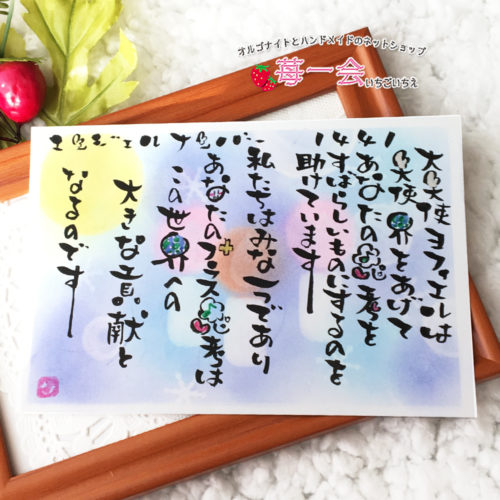 オルゴナイトとハンドメイドのネットショップ
苺一会
いちごいちえ
エンジェルナンバー
大天使ヨフィエルは
天使界をあげて
あなたの思考を
すばらしいものにするのを
助けています
私たちはみな一つであり
あなたのプラス思考は
この世界への
大きな貢献と
なるのです